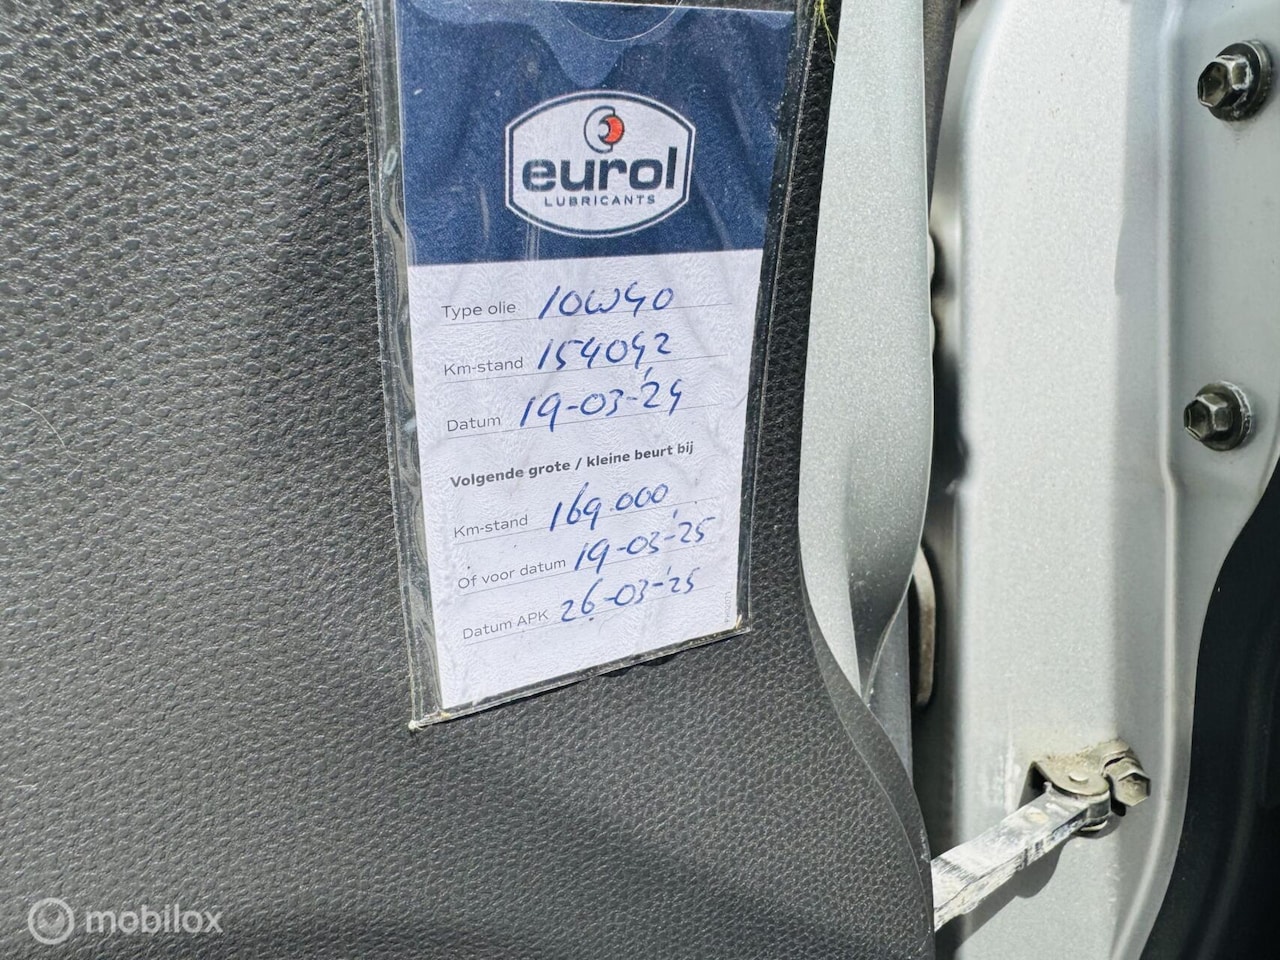 eurol
LUBRICANTS
Type olie 10W40
Km-stand 154042
Datum 19-03-'24
Volgende grote / kleine beurt bij
Km-stand 169.000
Of voor datum 19-03-'25
Datum APK 26-03-'25
mobilox